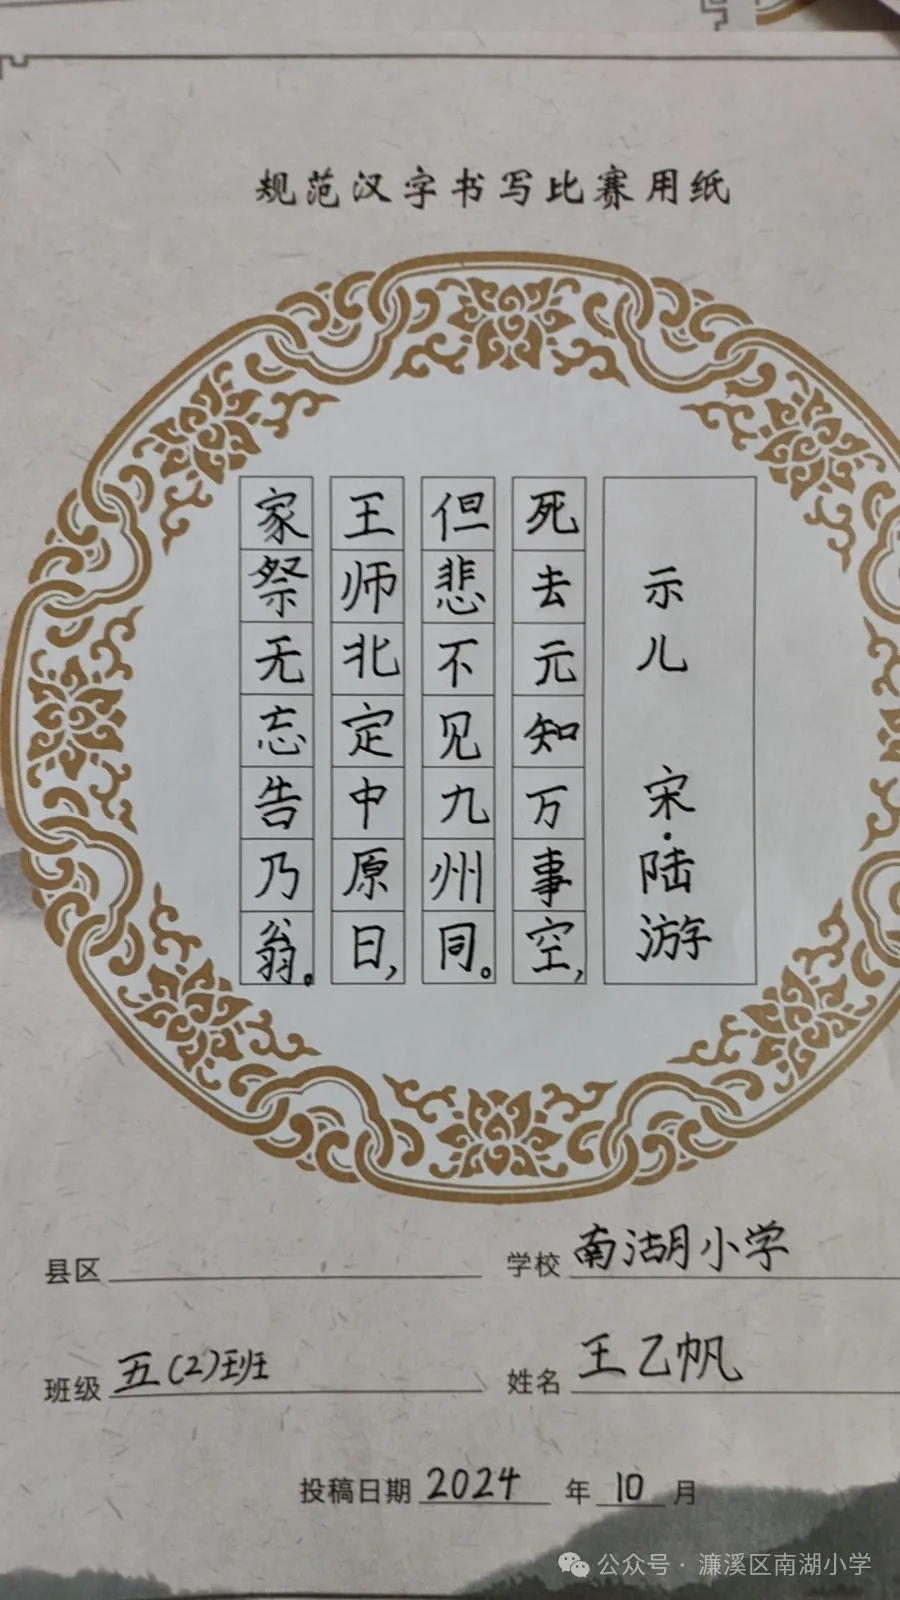 规范汉字书写比赛用纸
示儿
宋·陆游
死去元知万事空,
但悲不见九州同。
王师北定中原日,
家祭无忘告乃翁。
县区
学校 南湖小学
班级 五(2)班
姓名 王乙帆
投稿日期 2024 年 10 月
公众号·濂溪区南湖小学